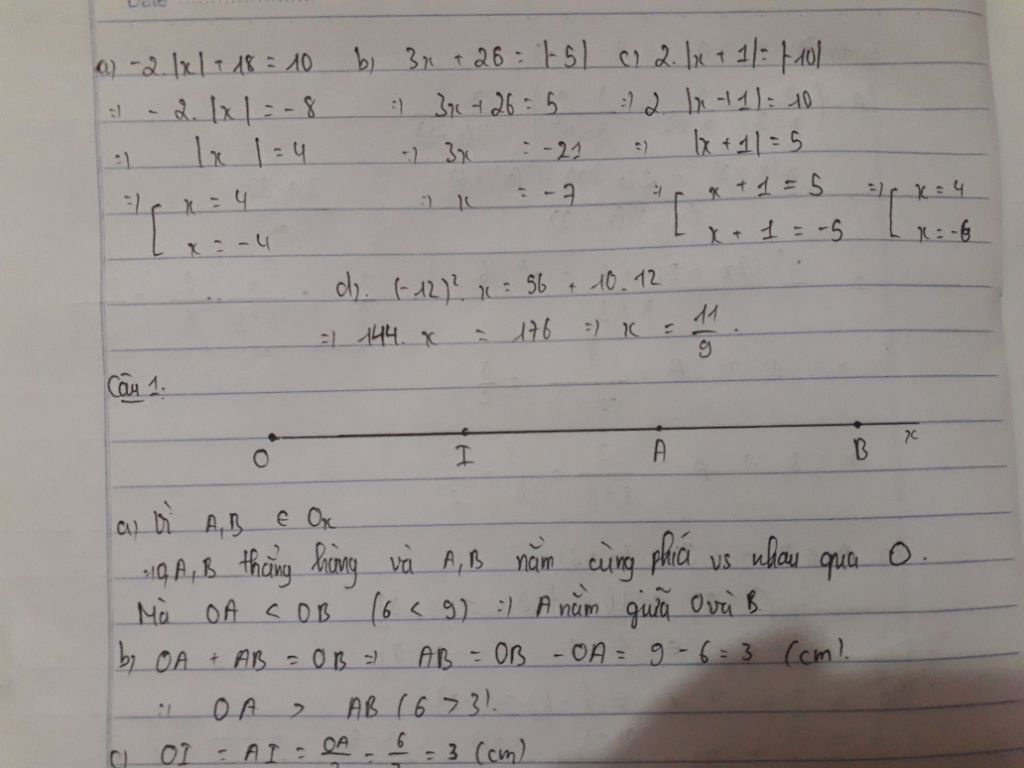 Date
a) -2.|x| + 18 = 10 b) 3x + 26 = |-5| c) 2.|x + 1| = |-10|
=) -2.|x| = -8 =) 3x + 26 = 5 =) 2 |x + 1| = 10
=) |x| = 4 =) 3x = -21 =) |x + 1| = 5
=) [ x = 4 =) x = -7 =) [ x + 1 = 5 =) [ x = 4
x = -4 x + 1 = -5 x = -6
d). (-12)². x = 56 + 10.12
=) 144. x = 176 =) x = 11/9.
Câu 1:
O I A B x
a) Vì A,B ∈ Ox
=) O,A,B thẳng hàng và A,B nằm cùng phía vs nhau qua O.
Mà OA < OB (6 < 9) =) A nằm giữa O và B.
b) OA + AB = OB =) AB = OB - OA = 9 - 6 = 3 (cm).
=) OA > AB (6 > 3).
c) OI = AI = OA/2 = 6/2 = 3 (cm)